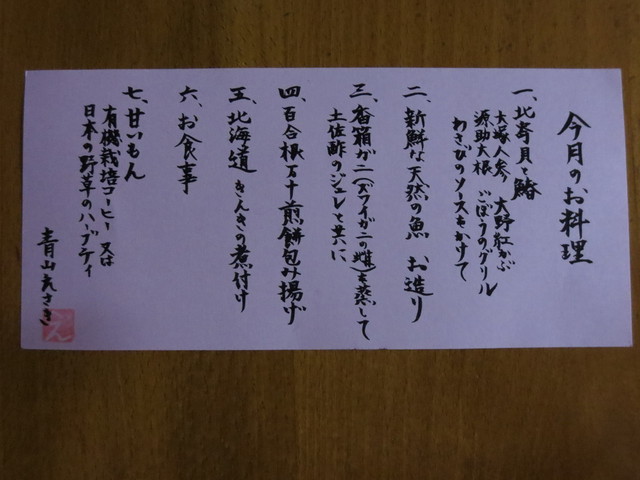 今月のお料理
一、北寄貝と鰆
大塚人参 大野紅かぶ
源助大根 ごぼうのグリル
わさびのソースをかけて
二、新鮮な天然の魚 お造り
三、香箱ガニ(ズワイガニの雌)を蒸して
土佐酢のジュレと共に
四、百合根万十煎餅包み揚げ
五、北海道 きんきの煮付け
六、お食事
七、甘いもん
有機栽培コーヒー 又は
日本の野草のハーブティ
青山えさき